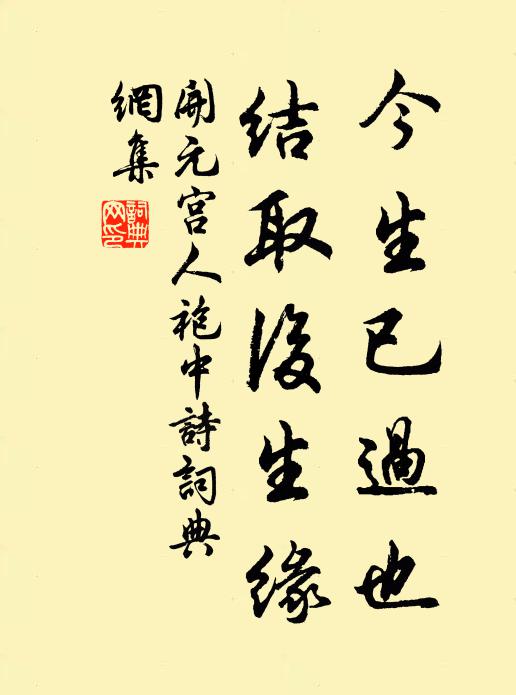 今生已過也
結取後生緣
開元宮人袍中詩詞典
網集
詞典網印